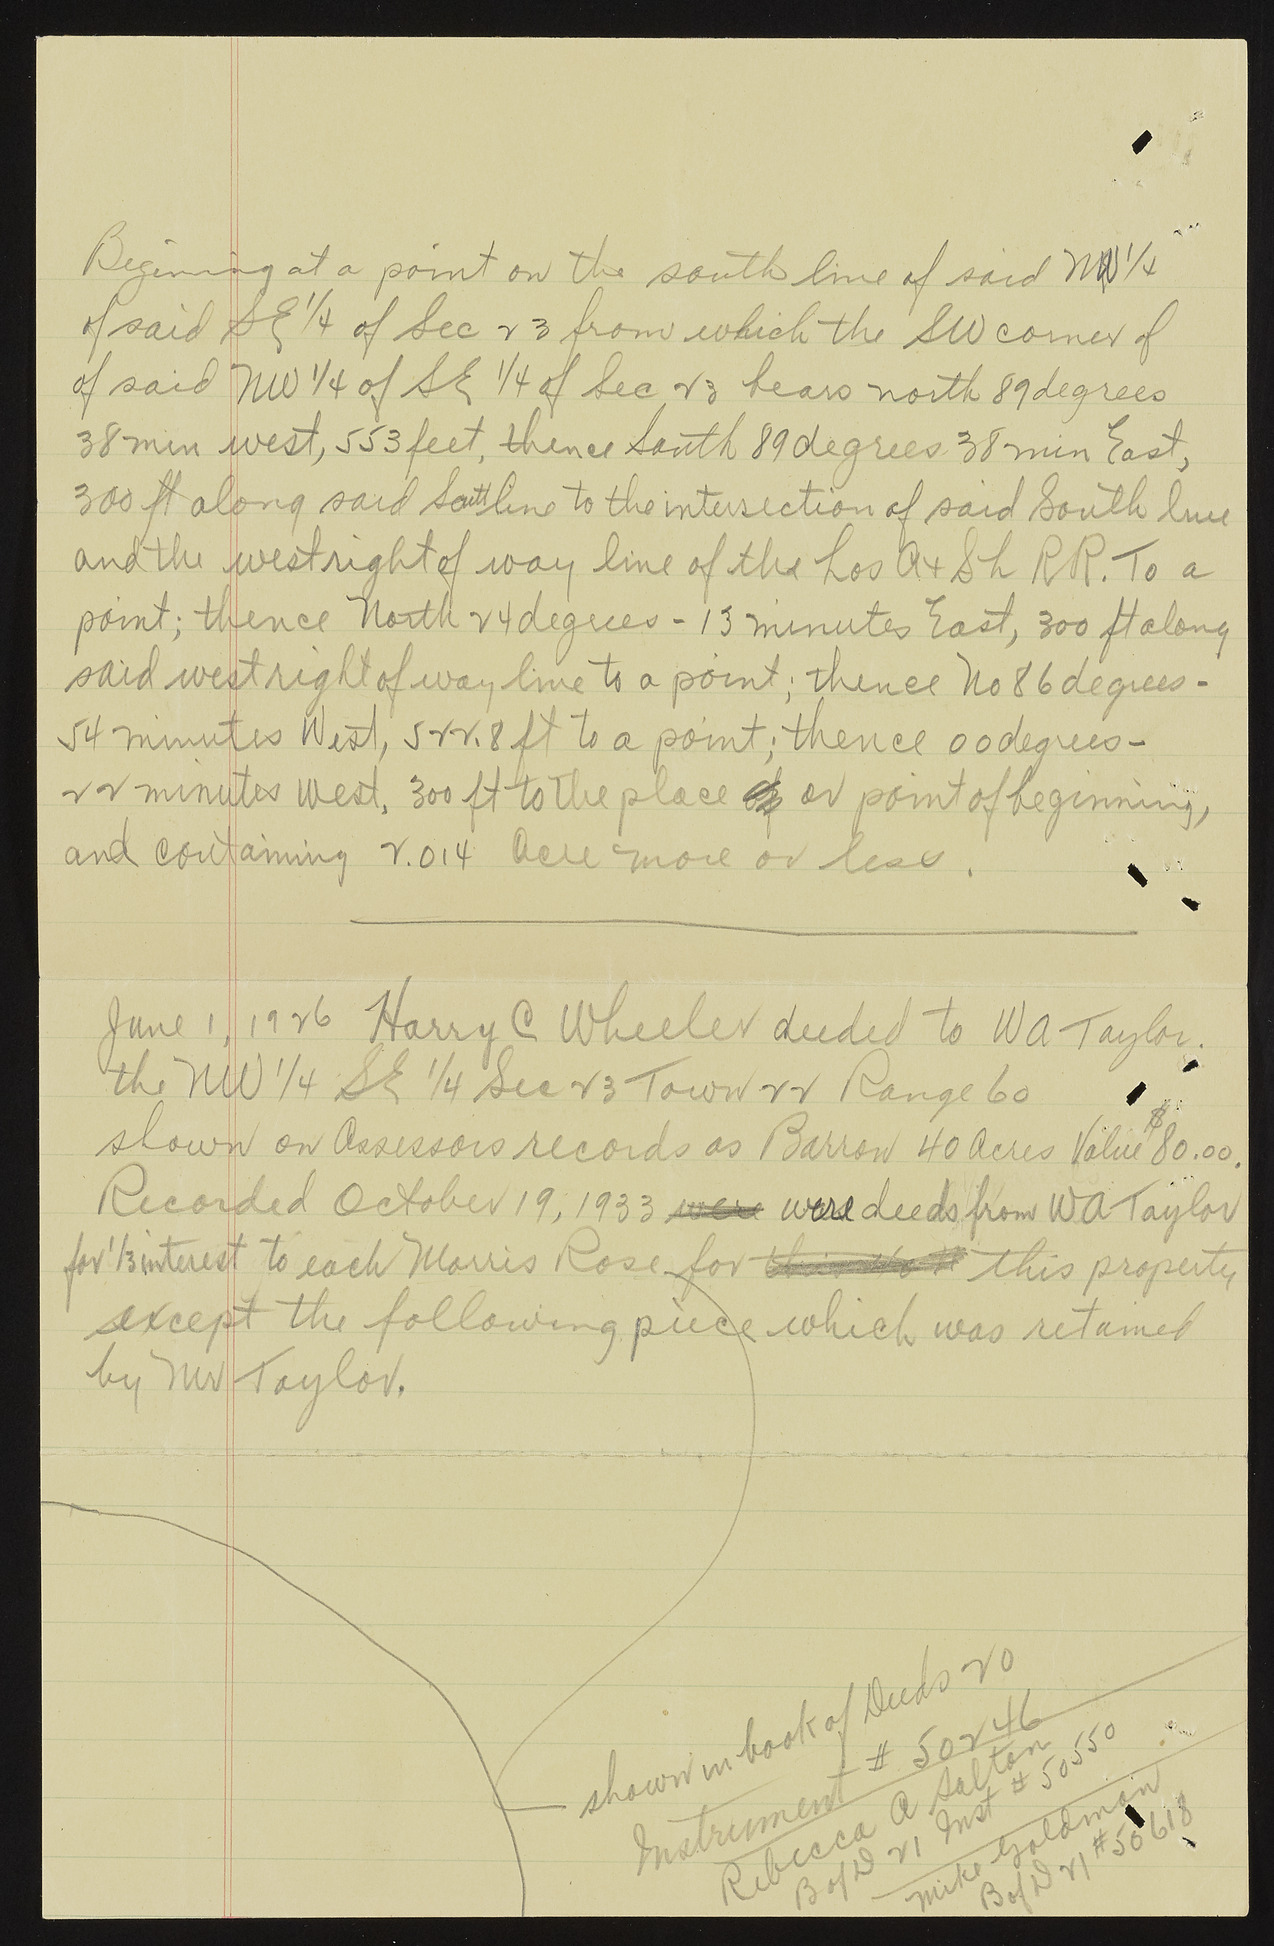 Beginning at a point on the south line of said NW 1/4
of said SE 1/4 of Sec 23 from which the SW corner of
of said NW 1/4 of SE 1/4 of Sec 23 bears north 89 degrees
38 min west, 553 feet, thence South 89 degrees 38 min East,
300 ft along said South line to the intersection of said South line
and the west right of way line of the Los A + S L RR. To a
point; thence North 24 degrees - 13 minutes East, 300 ft along
said west right of way line to a point; thence No 86 degrees -
54 minutes West, 522.8 ft to a point; thence 00 degrees -
22 minutes West, 300 ft to the place or point of beginning,
and containing 2.014 Acre more or less.
June 1, 1926 Harry C Wheeler deeded to WA Taylor.
the NW 1/4 SE 1/4 Sec 23 Town 22 Range 60
shown on Assessors records as Barron 40 Acres Value $80.00.
Recorded October 19, 1933 were were deeds from WA Taylor
for 1/3 interest to each Morris Rose for this property
except the following piece which was retained
by Mr Taylor.
shown in book of Deeds 20
Instrument # 50246
Rebecca A Salton
B of D 21 Inst # 50550
Mike Goldman
B of D 21 # 50618